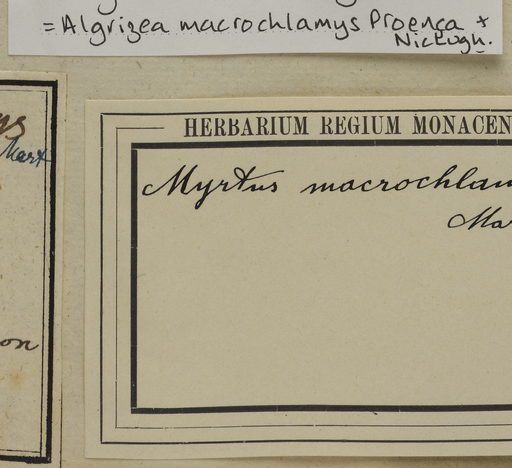 = Algrizea macrochlamys Proença +
NicLugh.
Mart
on
HERBARIUM REGIUM MONACEN
Myrtus macrochlam
Mar